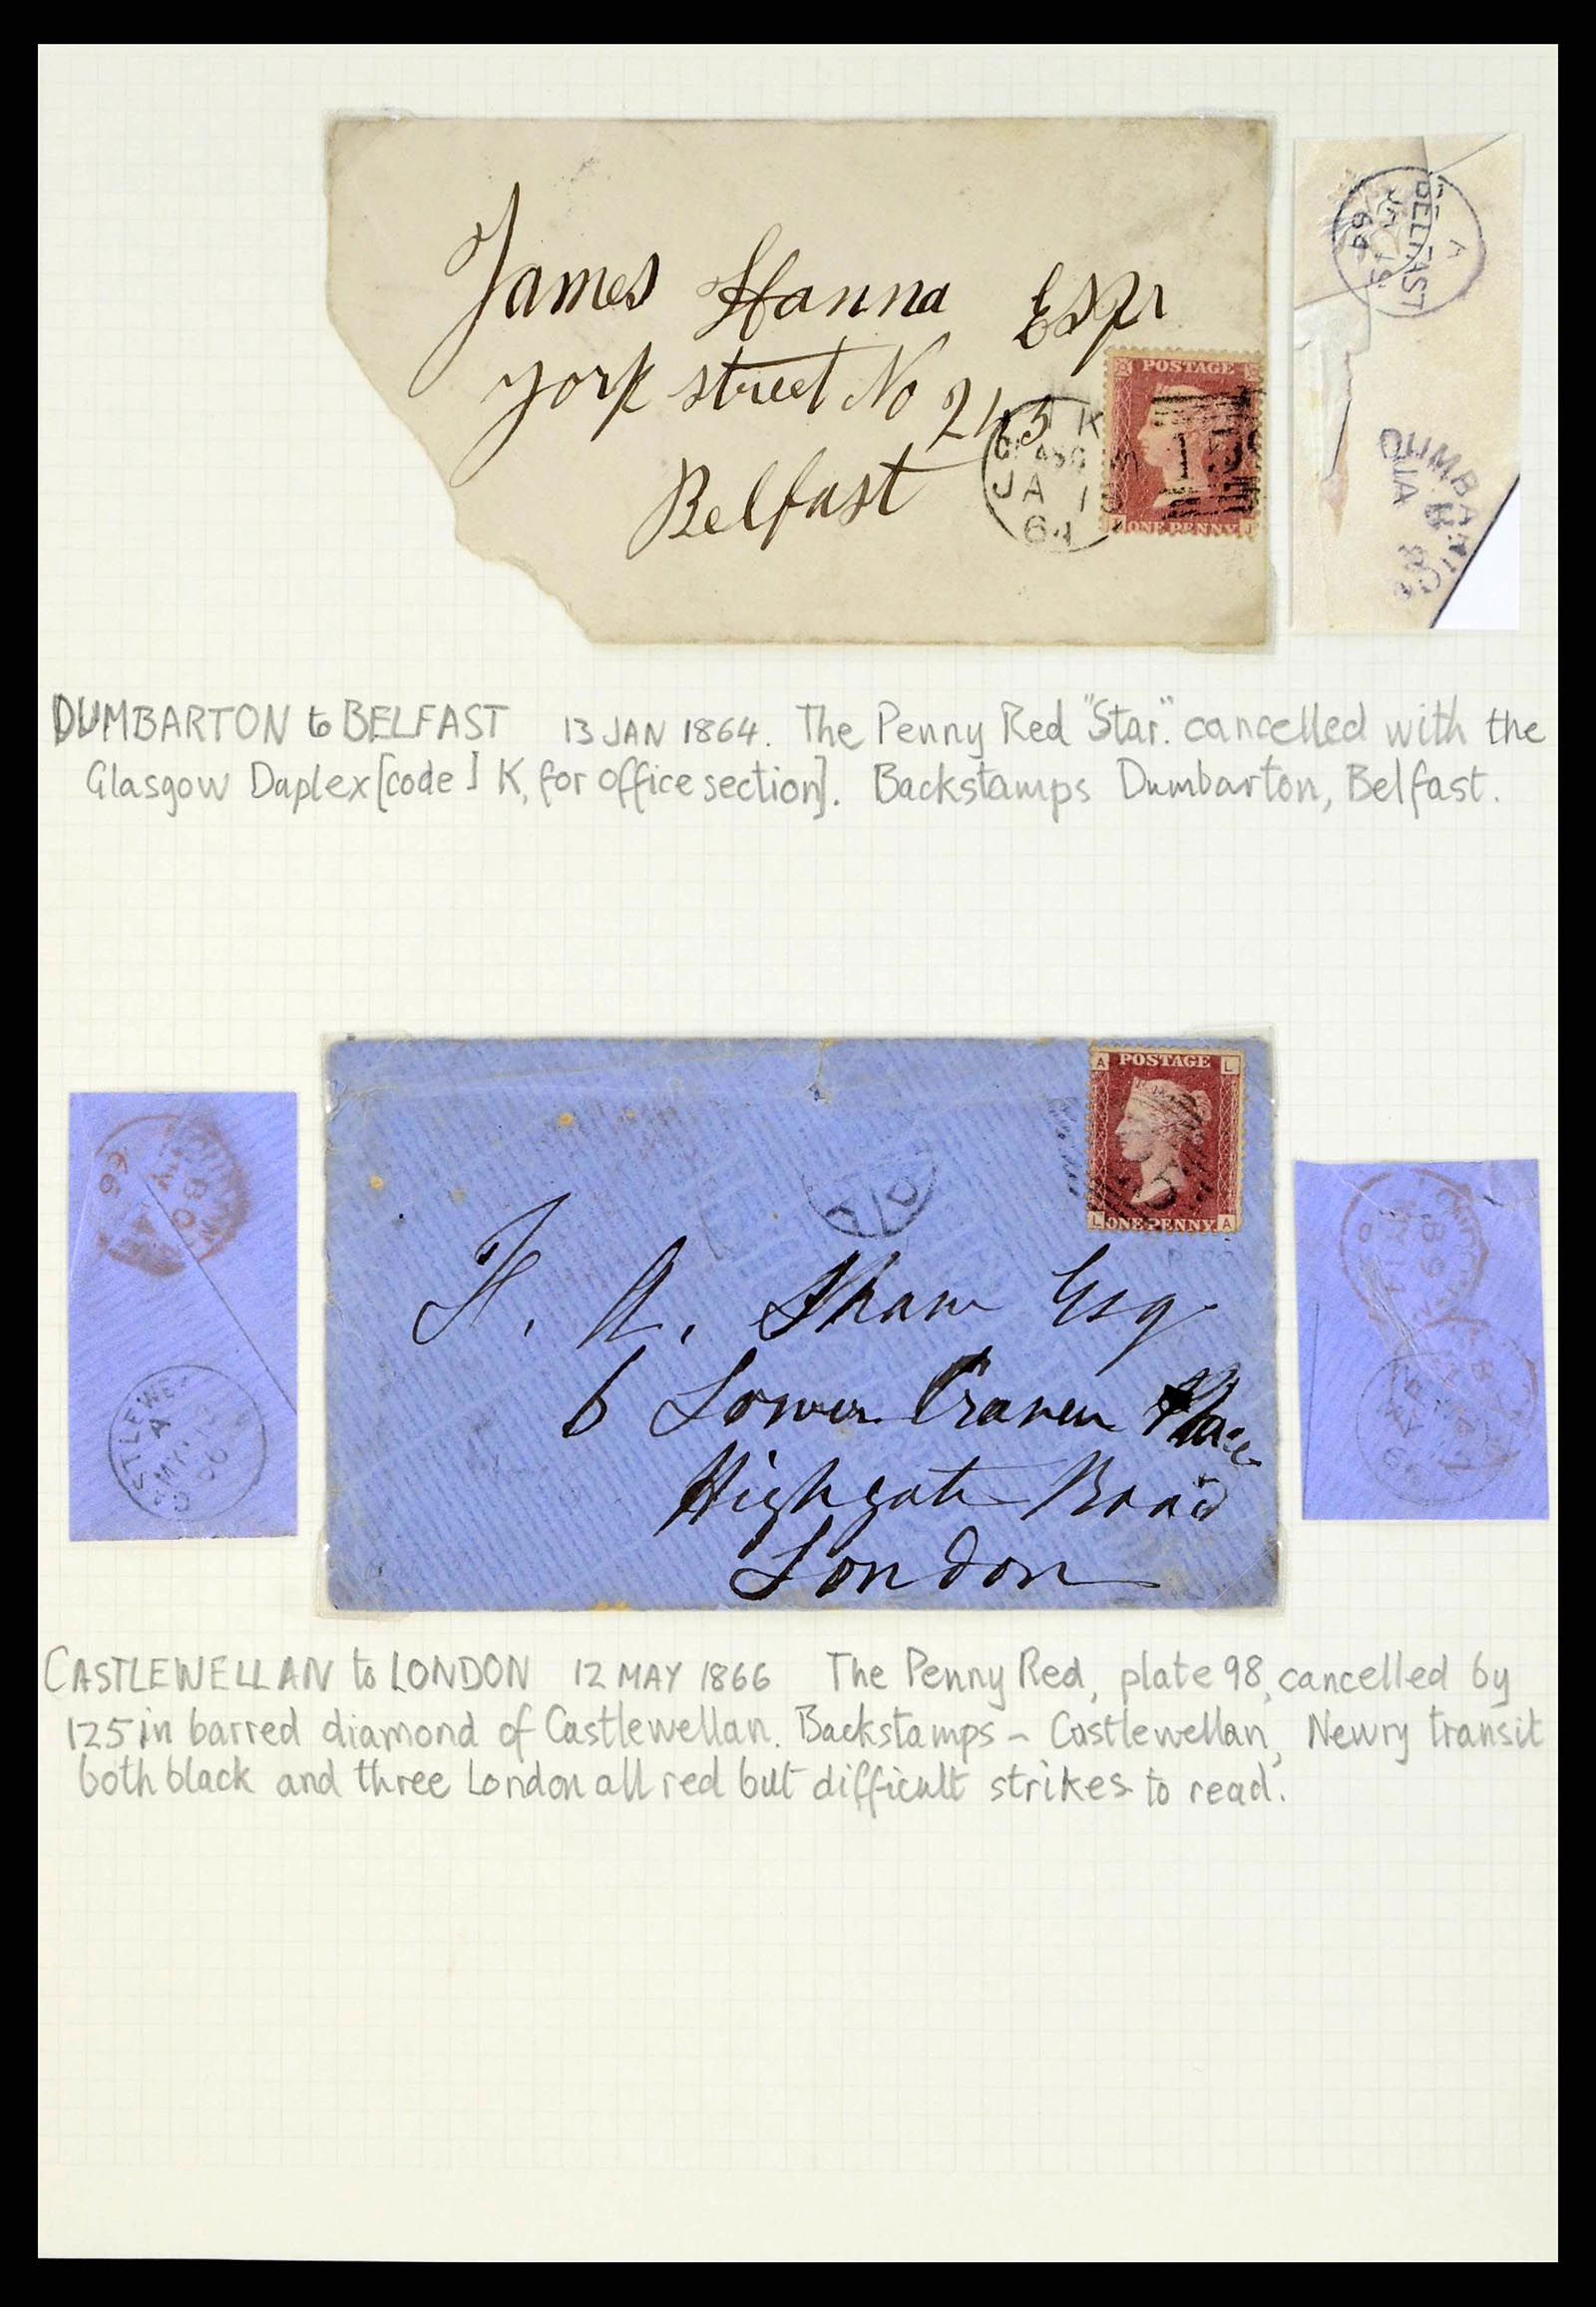 James Hanna Esqr
York street No 245
Belfast
POSTAGE
ONE PENNY J
K
GLASG
JA 1
64
159
A
BELFAST
64
DUMBARTON
JA
DUMBARTON to BELFAST 13 JAN 1864. The Penny Red "Star". cancelled with the
Glasgow Daplex [code J K, for office section]. Backstamps Dumbarton, Belfast.
A POSTAGE L
L ONE PENNY A
PD
66
STLEWE
A
MY
F. A. Shaw Esq
6 Lower Craven Place
Highgate Road
London
CASTLEWELLAN to LONDON 12 MAY 1866 The Penny Red, plate 98, cancelled by
125 in barred diamond of Castlewellan. Backstamps - Castlewellan, Newry transit
both black and three London all red but difficult strikes to read.